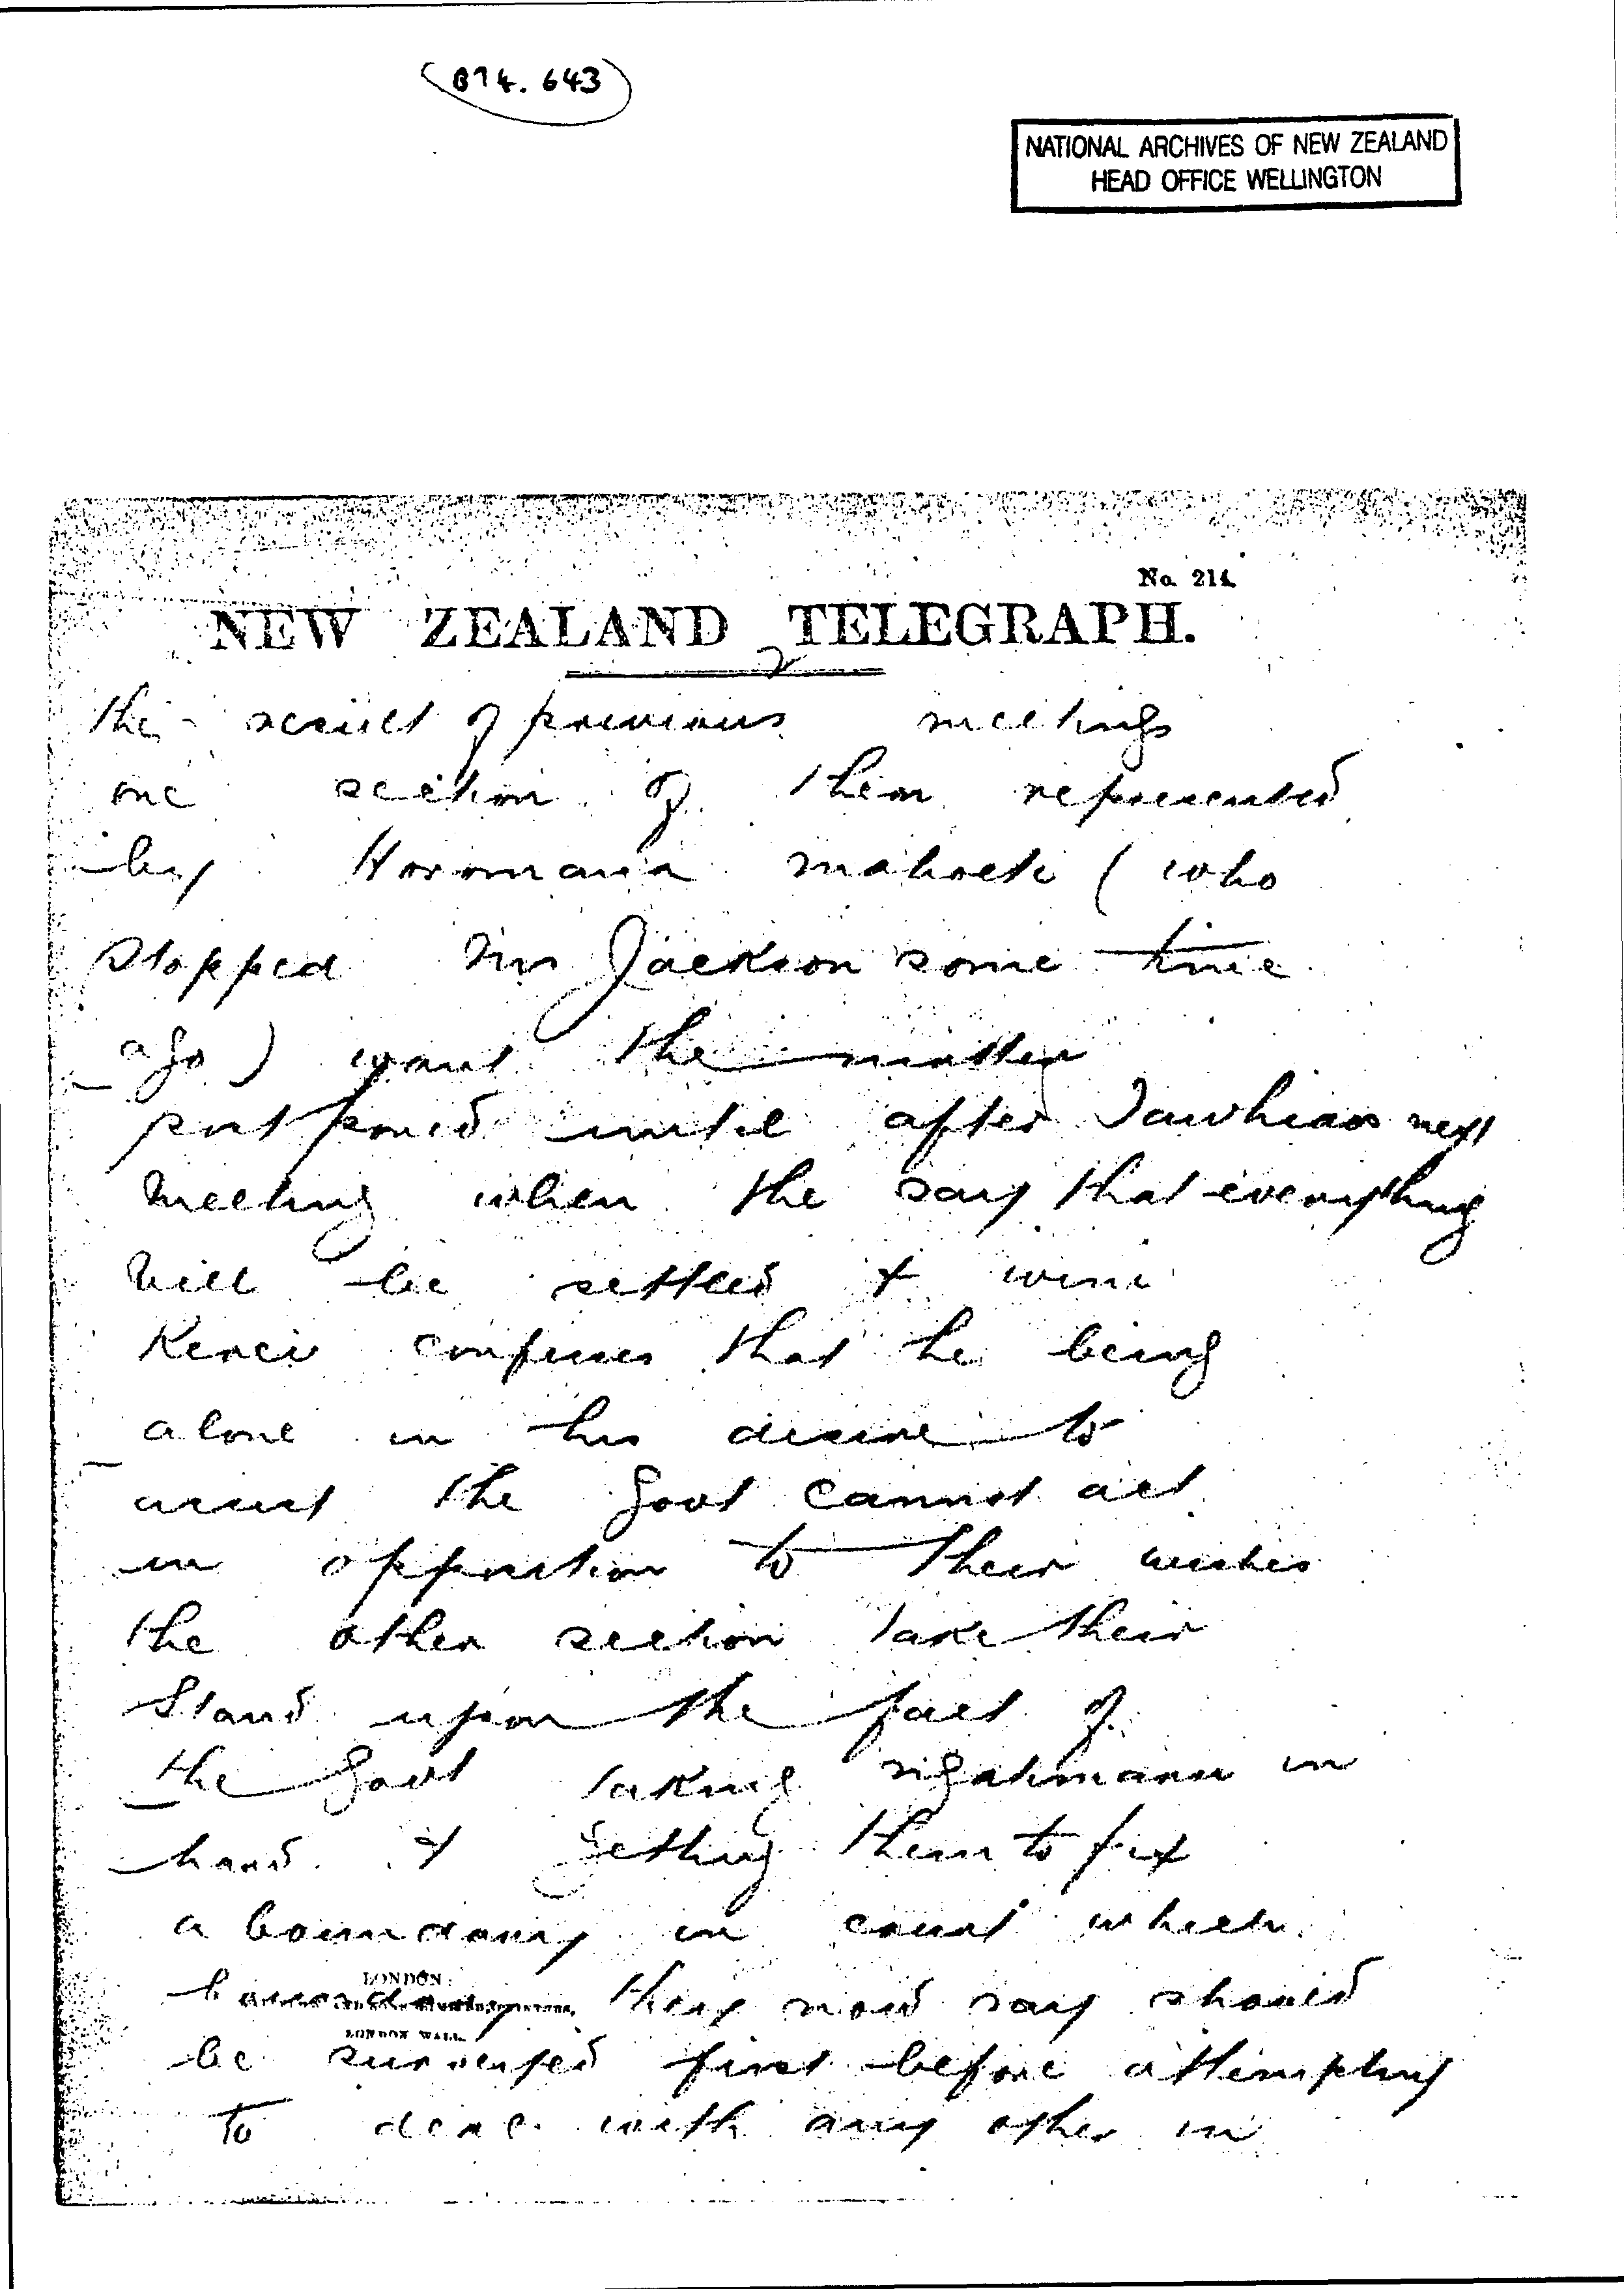 874.643
NATIONAL ARCHIVES OF NEW ZEALAND
HEAD OFFICE WELLINGTON
No. 214
NEW ZEALAND TELEGRAPH.
2
the result of previous meetings
one section of them represented
by mahoeti ( who
Stopped Mr Jackson some time
ago ) want the matter
postponed until after Tawhiaos next
meeting when the say that everything
will be settled &
confesses that he being
alone in his desire to
assist the Govt cannot act
in opposition to their wishes
the other section take their
Stand upon the fact of
the Govt taking ngatimaru in
hand & getting them to fix
a boundary in court which
boundary they now say should
LONDON
LONDON WALL
be surveyed first before attempting
to deal with any other in